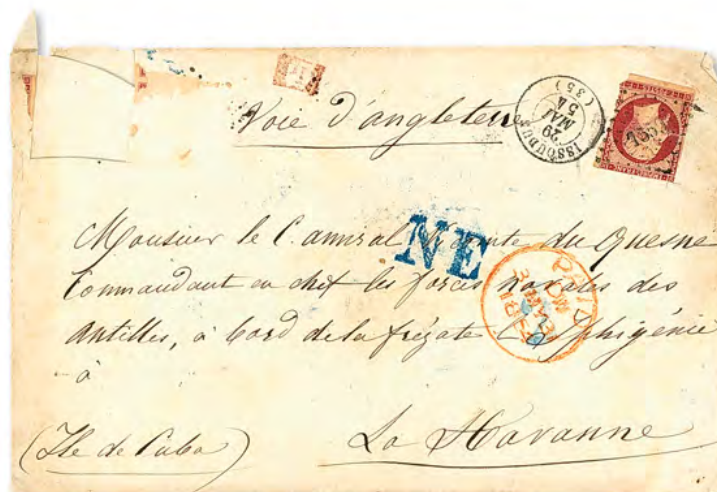 Voie d'angleterre
ISSOUDUN (35)
29
MAI
54
NE
Monsieur le C. amiral Vicomte du Quesne
Commandant en chef les forces navales des
Antilles, à bord de la frégate L'Iphigénie
à
PAID
1854
La Havanne
(Ile de Cuba)